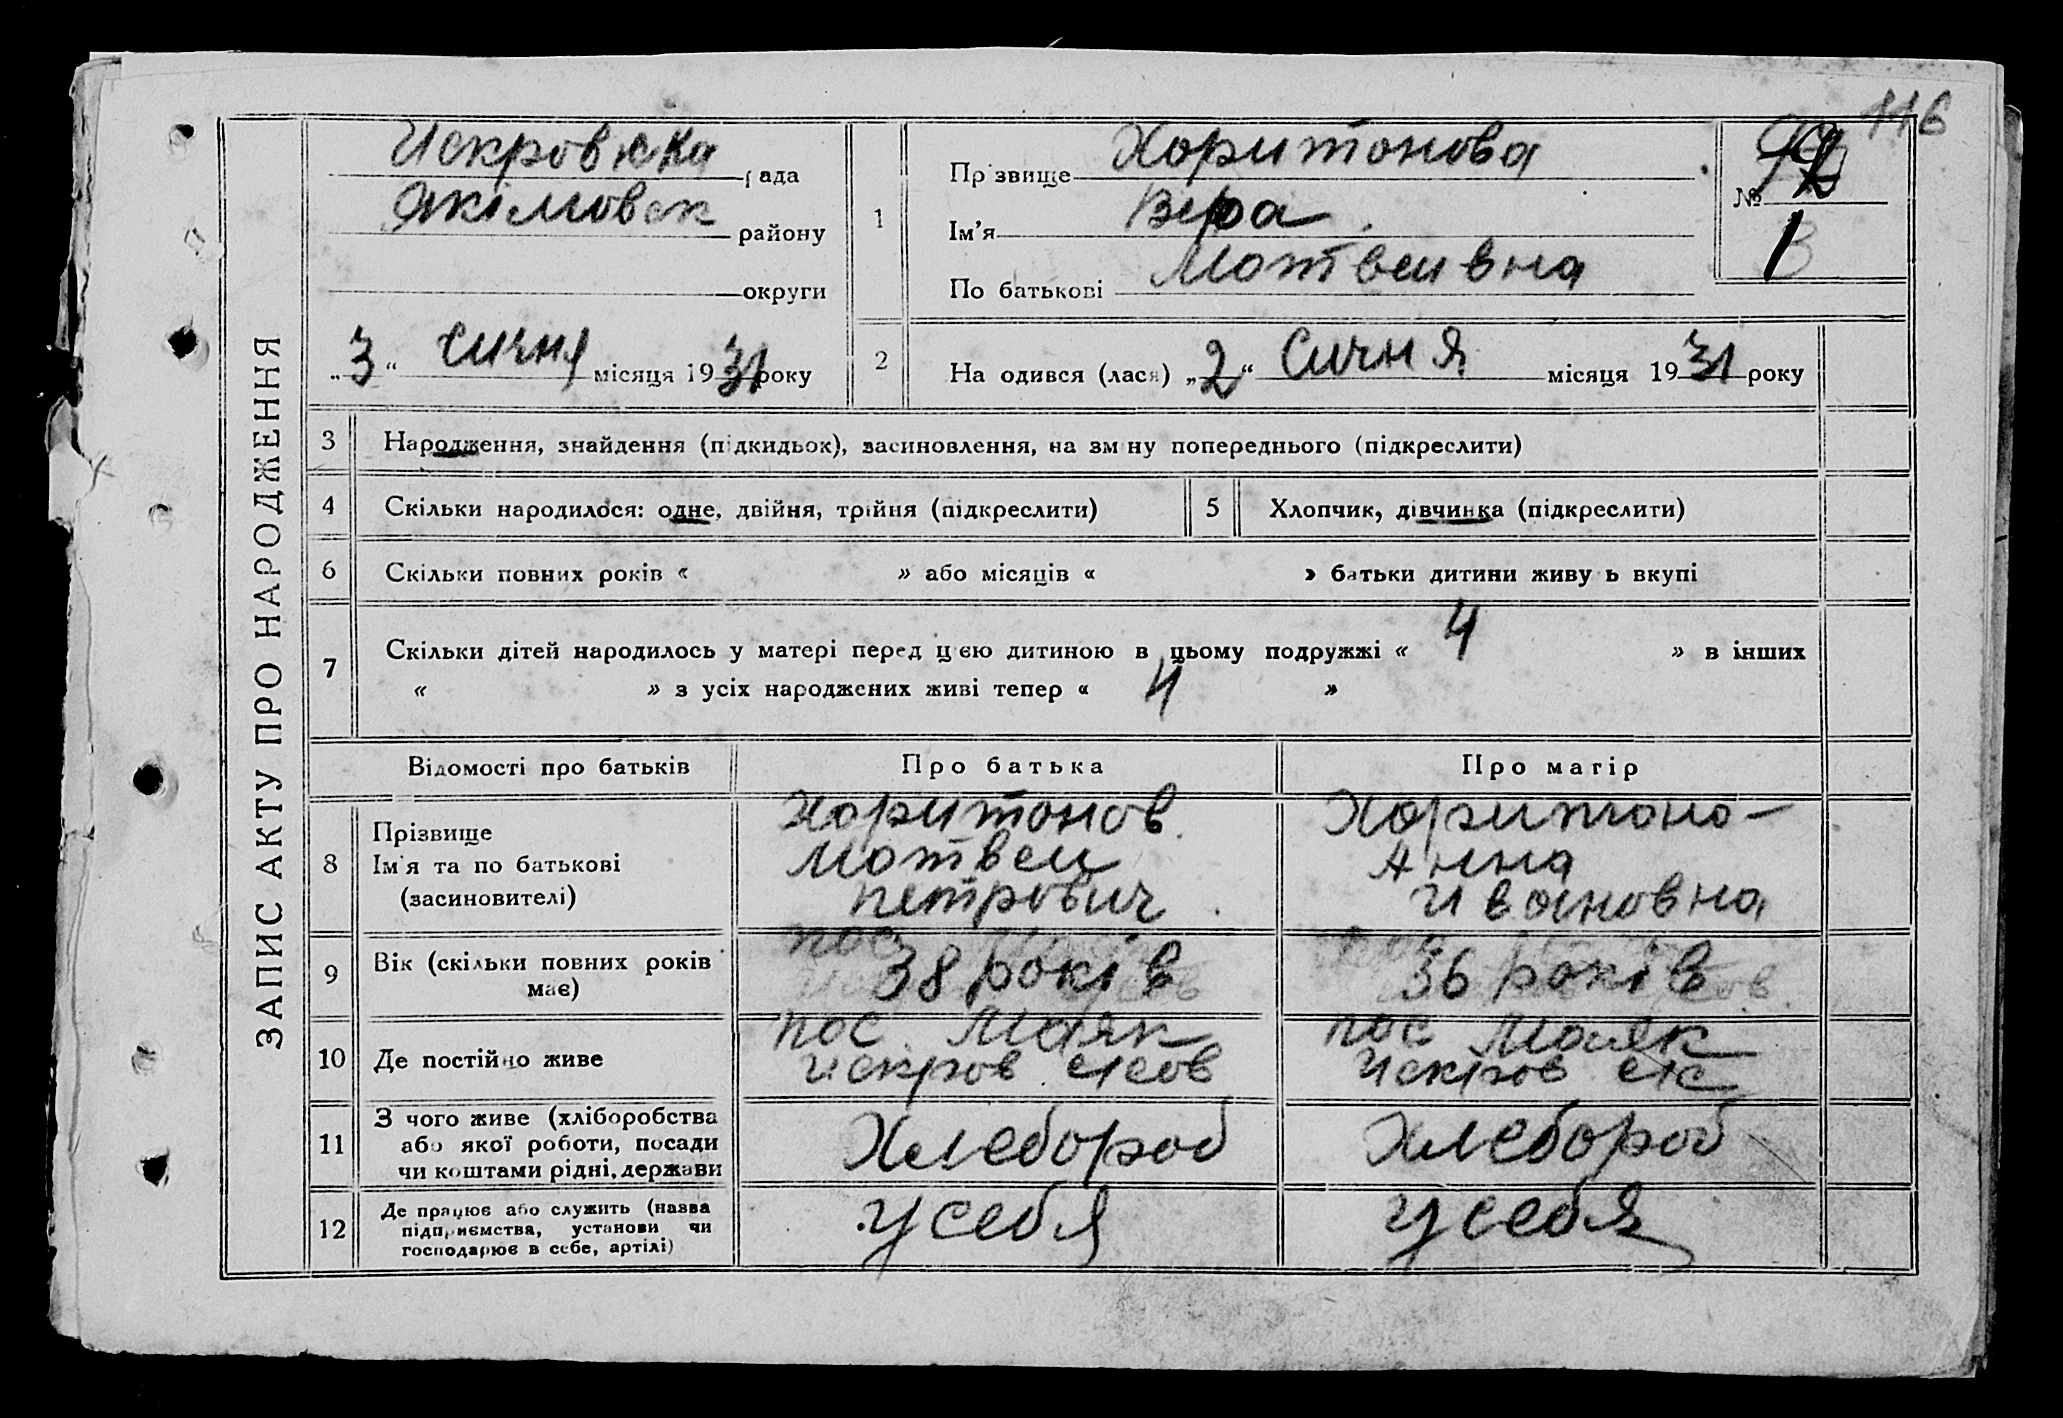 116
ЗАПИС АКТУ ПРО НАРОДЖЕННЯ
Искровска рада
Якімовск району
округи
„3“ сичня місяця 1931 року
1
Прізвище Харитонова
Ім'я Вера
По батькові Матвеивна
№
1
2
На одився (лася) „2“ Сичня місяця 1931 року
3 Народження, знайдення (підкидьок), засиновлення, на зм ну попереднього (підкреслити)
4 Скільки народилося: одне, двійня, трійня (підкреслити)
5 Хлопчик, дівчинка (підкреслити)
6 Скільки повних років « » або місяців « » батьки дитини живу ь вкупі
7 Скільки дітей народилось у матері перед цією дитиною в цьому подружжі « 4 » в інших
« » з усіх народжених живі тепер « 4 »
Відомості про батьків
Про батька
Про матір
8
Прізвище
Ім'я та по батькові
(засиновителі)
Харитонов
Матвеи
петрович
Харитоно-
Анна
Ивановна
9
Вік (скільки повних років
має)
38 років
36 років
10 Де постійно живе
пос. Маяк
Искров с/сов
пос Маяк
Искров с/с
11
З чого живе (хліборобства
або якої роботи, посади
чи коштами рідні, держави
Хлебороб
Хлебороб
12
Де працює або служить (назва
підприємства, установи чи
господарює в себе, артілі)
у себя
у себя